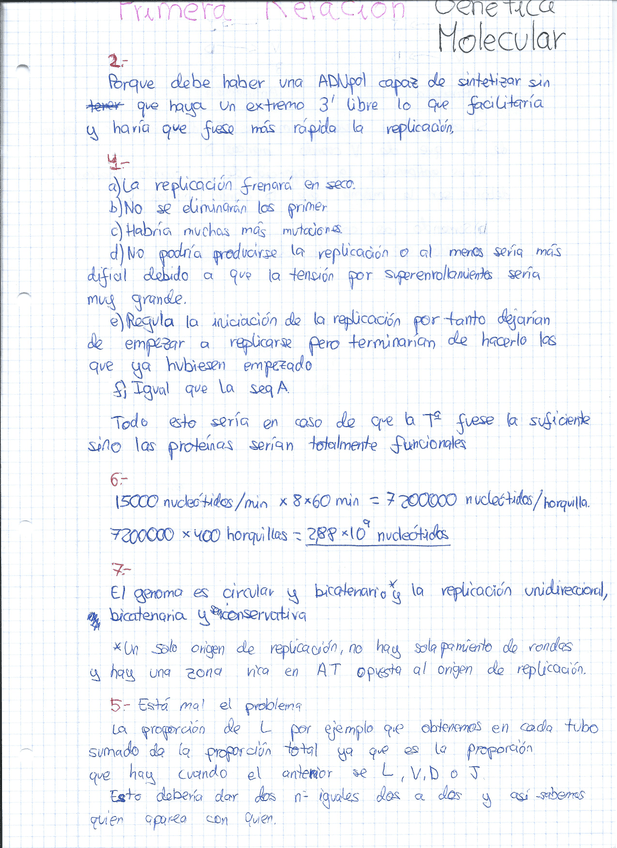 Primera Relación Genética
Molecular
2.-
Porque debe haber una ADNpol capaz de sintetizar sin
tener que haya un extremo 3' libre lo que facilitaría
y haría que fuese más rápida la replicación,
4.-
a) La replicación frenará en seco.
b) No se eliminarán los primer
c) Habría muchas más mutaciones
d) No podría producirse la replicación o al menos sería más
dificil debido a que la tensión por superenrollamiento sería
muy grande.
e) Regula la iniciación de la replicación por tanto dejarían
de empezar a replicarse pero terminarían de hacerlo las
que ya hubiesen empezado
f) Igual que la seq A.
Todo esto sería en caso de que la Tª fuese la suficiente
sino las proteínas serían totalmente funcionales
6.-
15000 nucleótidos/min × 8×60 min = 7200000 nucleótidos/horquilla.
7200000 × 400 horquillas = 2,88 × 10⁹ nucleótidos
7.-
El genoma es circular y bicatenario* y la replicación unidireccional,
bicatenaria y semiconservativa
*Un solo origen de replicación, no hay solapamiento de rondas
y hay una zona rica en AT opuesta al origen de replicación.
5.- Está mal el problema
La proporción de L por ejemplo que obtenemos en cada tubo
sumado da la proporción total ya que es la proporción
que hay cuando el anterior se L, V, D o J.
Esto debería dar dos nº iguales dos a dos y así sabemos
quien aparea con quien.